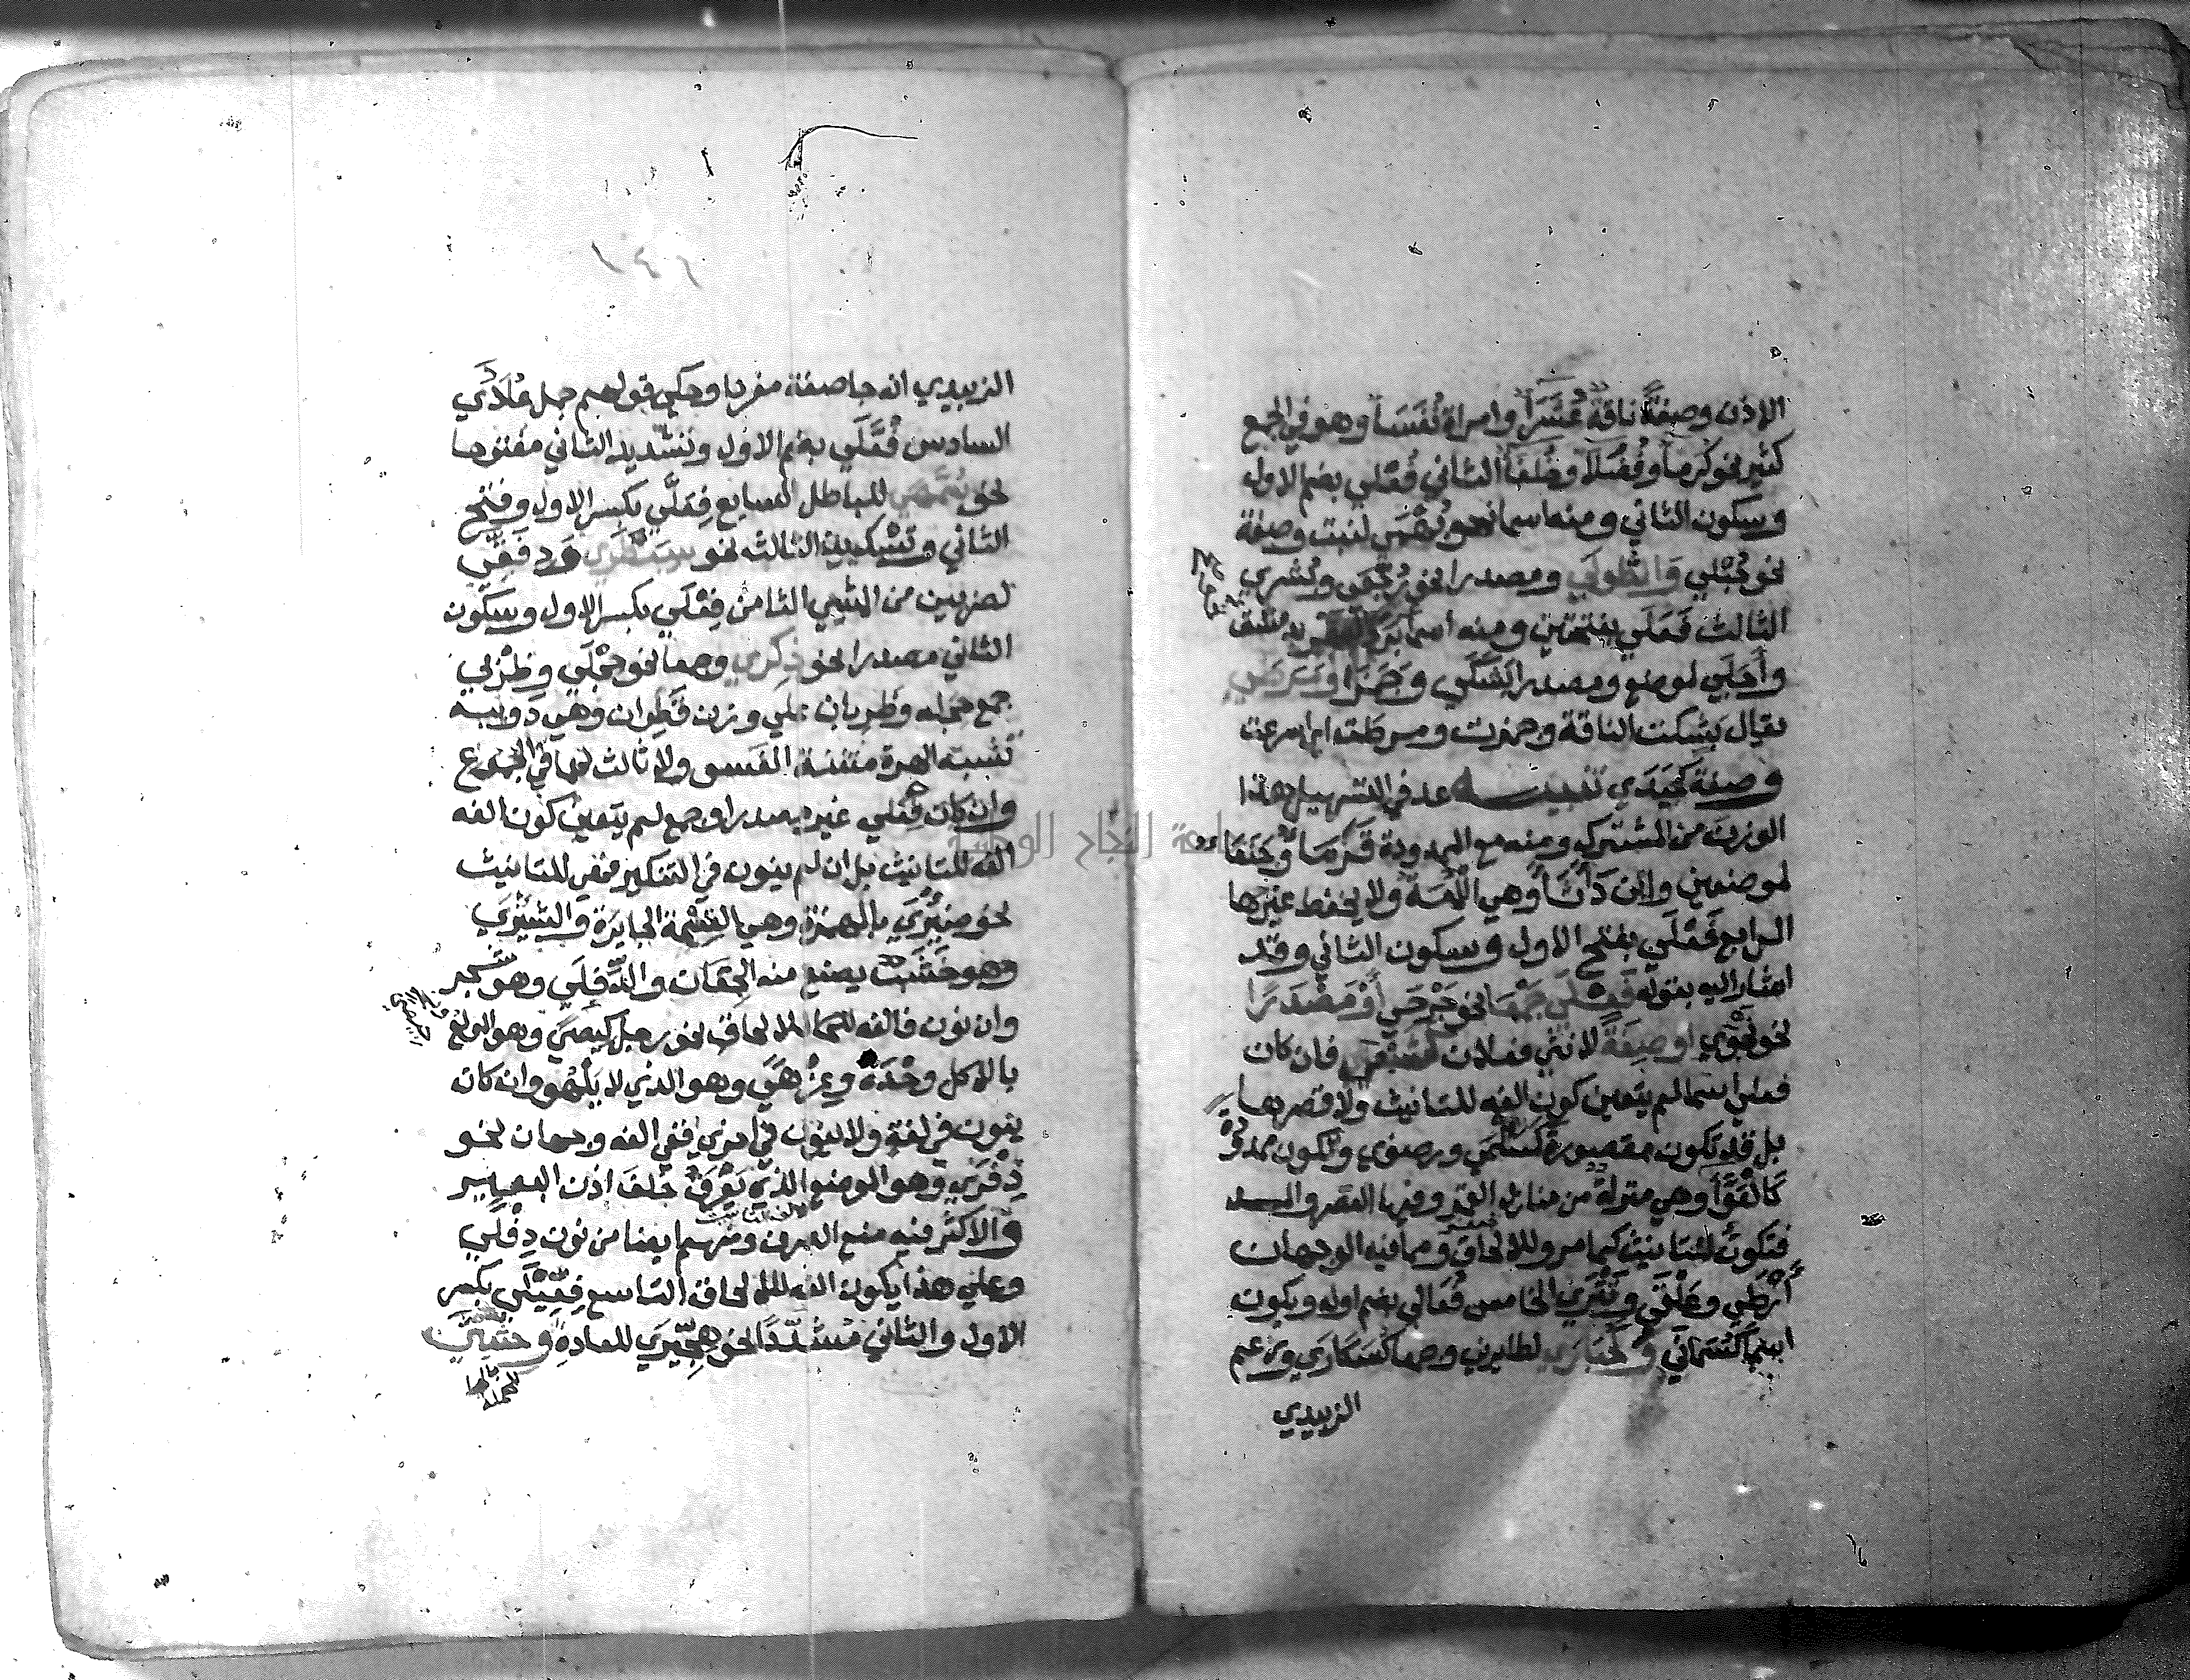 الاذن وصفةً ناقة عُشَرَا وامراة نُفَسَا وهو في الجمع
كثير نحو كرما وفُضَلا وخُلَفَا الثاني فُعْلي بضم الاول
وسكون الثاني ومنه اسما نحو بُهْمَي لنبت وصفة
نحو حُبْلي والطُولَي ومصدرا نحو رُجْعَي وبُشري
الثالث فَعَلَي بفتحتين ومنه اسما بَرَدَي لنهر بدمشق
وأَجَلَي لموضع ومصدرا كبَشَكَي وجَمَزَا ومَرَطَي
يقال بشكت الناقة وجمزت ومرطت اي اسرعت
وصفة كحَيَدَي تنبيــه عد في التسهيل هذا
الوزن من المشترك ومنه مع الممدودة قَرَمَا وجَنَفَا
لموضعين وابن دَأَثَا وهي الامة ولا يحفظ غيرها
الرابع فَعْلَي بفتح الاول وسكون الثاني وقد
اشار اليه بقوله فَعْلَي جَمْعًا نحو جَرْحَي أَوْ مَصْدَرَا
نحو نَجْوَي او صِفَةً لانثي فعلان كَشَبْعَي فان كان
فعلي اسما لم يتعين كون الفه للتانيث ولا قصرها
بل قد تكون مقصورة كسَلْمَي ورضوي وتكون ممدودة
كَالْعَوَّا وهي منزلة من منازل القمر وفيها القصر والمد
فتكون للتانيث كما مر وللالحاق ومما فيه الوجهان
أَرْطَي وعَلْقَي وتَتْرَي الخامس فُعَالي بضم اوله ويكون
اسما كَسُمَانَي وحُبَارَي لطايرين وجمعا كسُكَارَي وزعم
الزبيدي
١٤٦
الزبيدي انه جا صفة مفردا وحكي قولهم جمل عُلَادَي
السادس فُعَّلَي بضم الاول وتشديد الثاني مفتوحا
نحو سُمَّهَي للباطل السابع فِعَلَّي بكسر الاول وفتح
الثاني وتسكين الثالث نحو سِبَطْرَي ودِفَقَّي
لضربين من المشي الثامن فِعْلَي بكسر الاول وسكون
الثاني مصدرا نحو ذِكْري وجمعا نحو حِجْلَي وظِرْبي
جمع حجلة وظَرِبان علي وزن قَطِران وهي دويبة
تشبه الهرة منتنة الفسو ولا ثالث لهما في الجموع
وان كان فِعْلي غير مصدر او جمع لم يتعين كون الفه
الفه للتانيث بل ان لم ينون في التنكير فهي للتانيث
نحو ضِيْزَي بالهمزة وهي القسمة الجايرة والشِيْزَي
وهو خَشَبٌ يصنع منه الجفان والدِّفْلَي وهو شجر
وان نون فالفه للالحاق نحو رجل كِيْصَي وهو المولع
بالاكل وحْدَهُ وعِزْهًي وهو الذي لا يَلْهُو وان كان
ينون في لغة ولا ينون في اخري ففي الفه وجهان نحو
ذِفْرَي وهو الموضع الذي يَعْرَقُ خلفَ اذن البعير
والاكثر فيه منع الصرف ومنهم ايضا من نون دِفْلًي
وعلي هذا يكون الفه للالحاق التاسع فِعِّيْلَي بكسر
الاول والثاني مشدّدًا نحو هِجِّيرَي للعادة وحثيثي